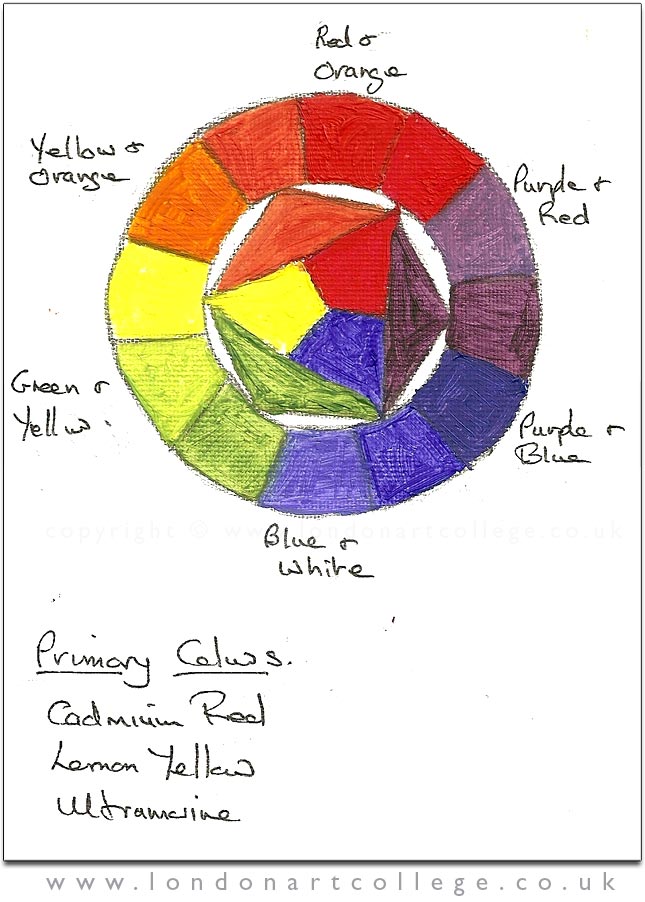 Red &
Orange
Yellow &
Orange
Purple &
Red
Green &
Yellow.
Purple &
Blue
copyright © www.londonartcollege.co.uk
Blue &
White
Primary Colours.
Cadmium Red
Lemon Yellow
Ultramarine
www.londonartcollege.co.uk